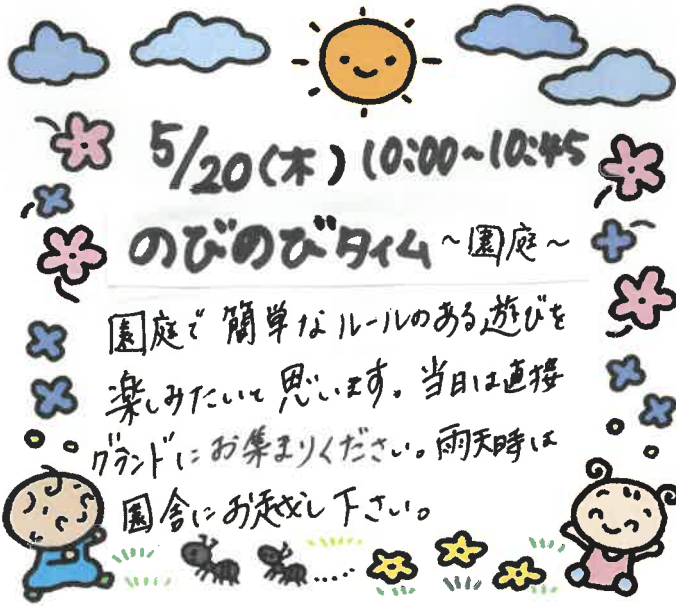 5/20(木)10:00~10:45
のびのびタイム ~園庭~
園庭で簡単なルールのある遊びを
楽しみたいと思います。当日は直接
グランドにお集まりください。雨天時は
園舎にお越し下さい。